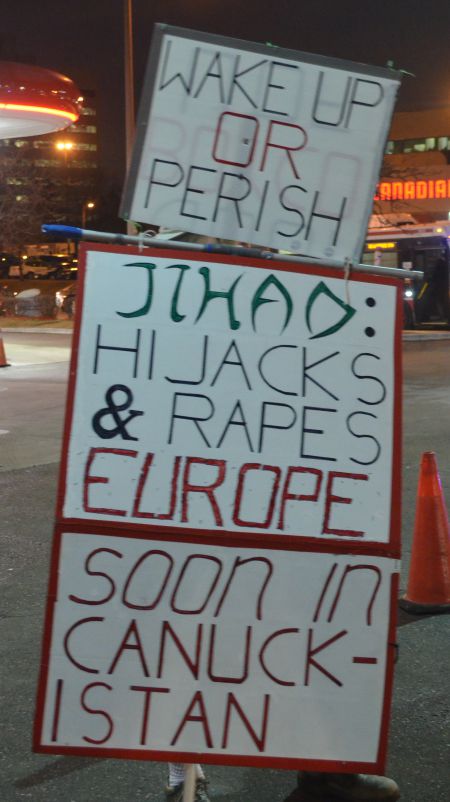 WAKE UP
OR
PERISH
JIHAD:
HIJACKS
& RAPES
EUROPE
SOON IN
CANUCK-
ISTAN
CANADIAN